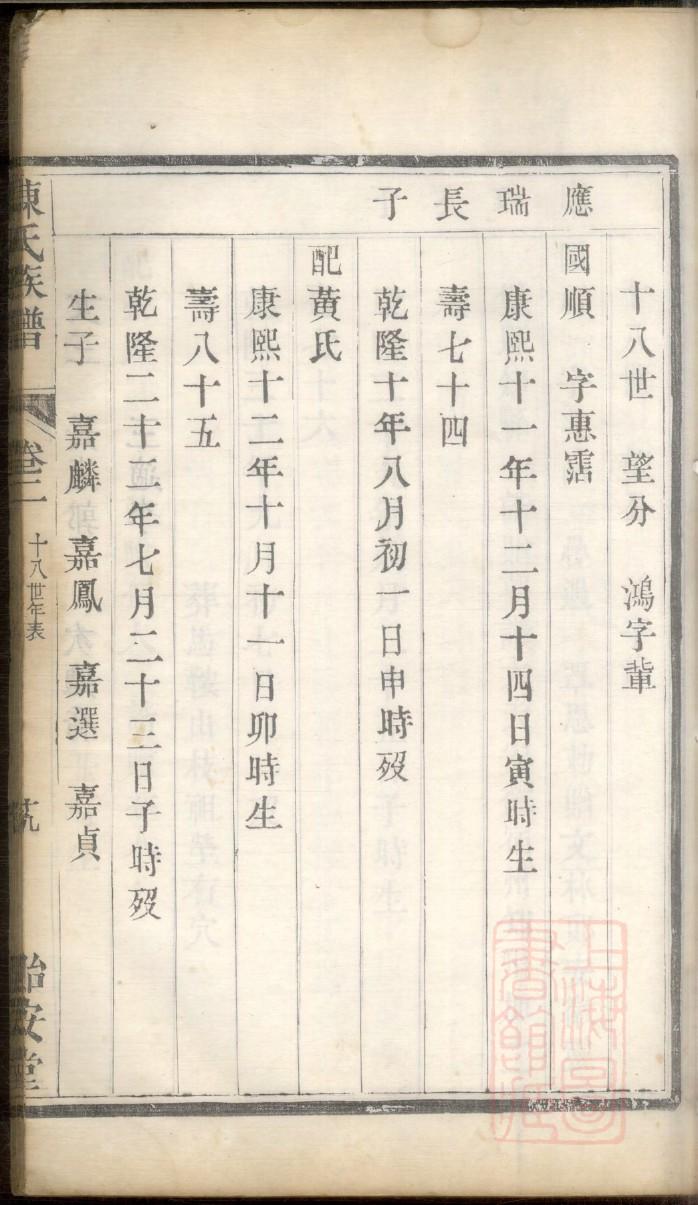 十八世　望分　鴻字輩
應瑞長子
國順　字惠霑
康熙十一年十二月十四日寅時生
壽七十四
乾隆十年八月初一日申時歿
配黃氏
康熙十二年十月十一日卯時生
壽八十五
乾隆二十二年七月二十三日子時歿
生子　嘉麟　嘉鳳　嘉選　嘉貞
陳氏族譜　卷二　十八世年表　　怡安堂
上海圖書館藏